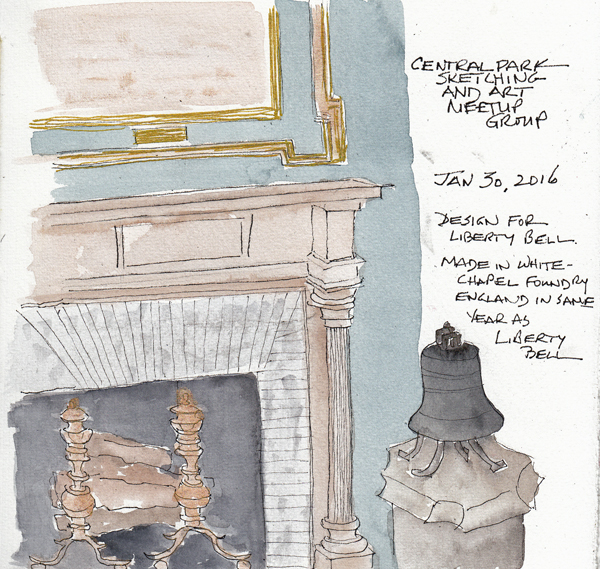 CENTRAL PARK
SKETCHING
AND ART
MEETUP
GROUP
JAN 30, 2016
DESIGN FOR
LIBERTY BELL.
MADE IN WHITE-
CHAPEL FOUNDRY
ENGLAND IN SAME
YEAR AS
LIBERTY
BELL